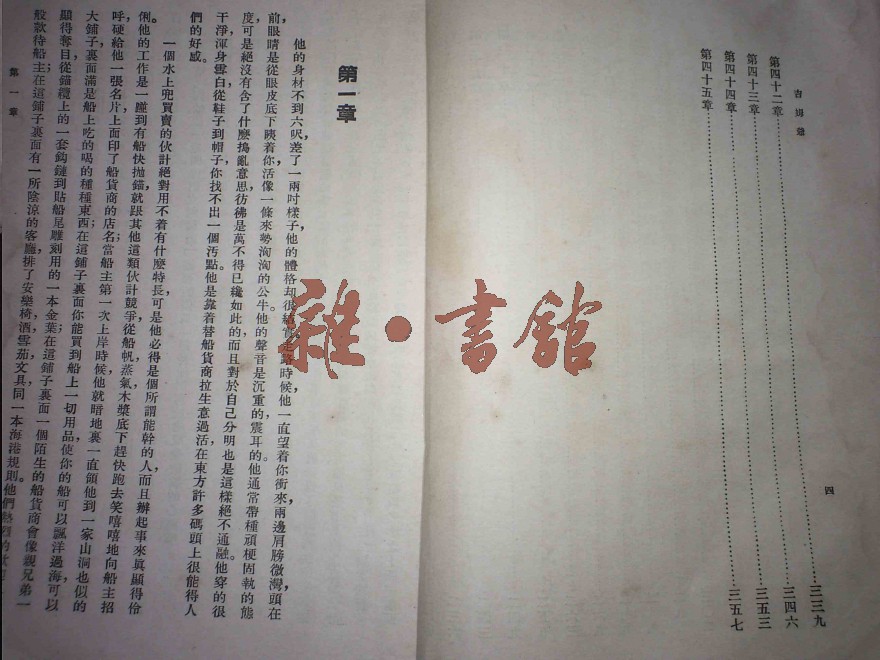 吉姆爺
四
第四十二章……三三九
第四十三章……三四六
第四十四章……三五三
第四十五章……三五七
第一章
他的身材不到六呎,差了一兩吋樣子,他的體格却很結實,走路時候他一直望着你衝來,兩邊肩膀微灣,頭在
前,眼睛是從眼皮底下𥄫着你,活像一條來勢洶洶的公牛。他的聲音是沉重的,震耳的。他通常帶種頑梗固執的態
度,可是絕沒有含了什麼搗亂意思,彷彿是萬不得已纔如此的,而且對於自己分明也是這樣絕不通融。他穿的很
干淨,渾身雪白,從鞋子到帽子,你找不出一個汚點。他是靠着替船貨商拉生意過活,在東方許多碼頭上很能得人
們的好感。
一個水上兜買賣的伙計絕對用不着有什麼特長,可是他必得是個所謂能幹的人,而且辦起事來眞顯得伶
俐。他的工作是一瞳到有船快拋錨,就跟其他這類伙計競爭,從船帆,蒸氣,木槳底下趕快跑去,笑嘻嘻地向船主招
呼,硬給他一張名片,上面印了船貨商的店名;當船主第一次上岸時候,他就暗地裏一直領他到一家山洞也似的
大鋪子,裏面滿是船上吃的喝的種種東西;在這鋪子裏面你能買到船上一切用品,使你的船可以飄洋過海,可以
顯得奪目,從錨纜上的一套鈎鏈到貼船尾雕刻用的一本金葉;在這鋪子裏面一個陌生的船貨商會像親兄弟一
般款待船主。在這鋪子裏面有一所陰涼的客廳,排了安樂椅,酒,雪茄,文具,同一本海港規則。他們熱烈的
第一章
雜·書館